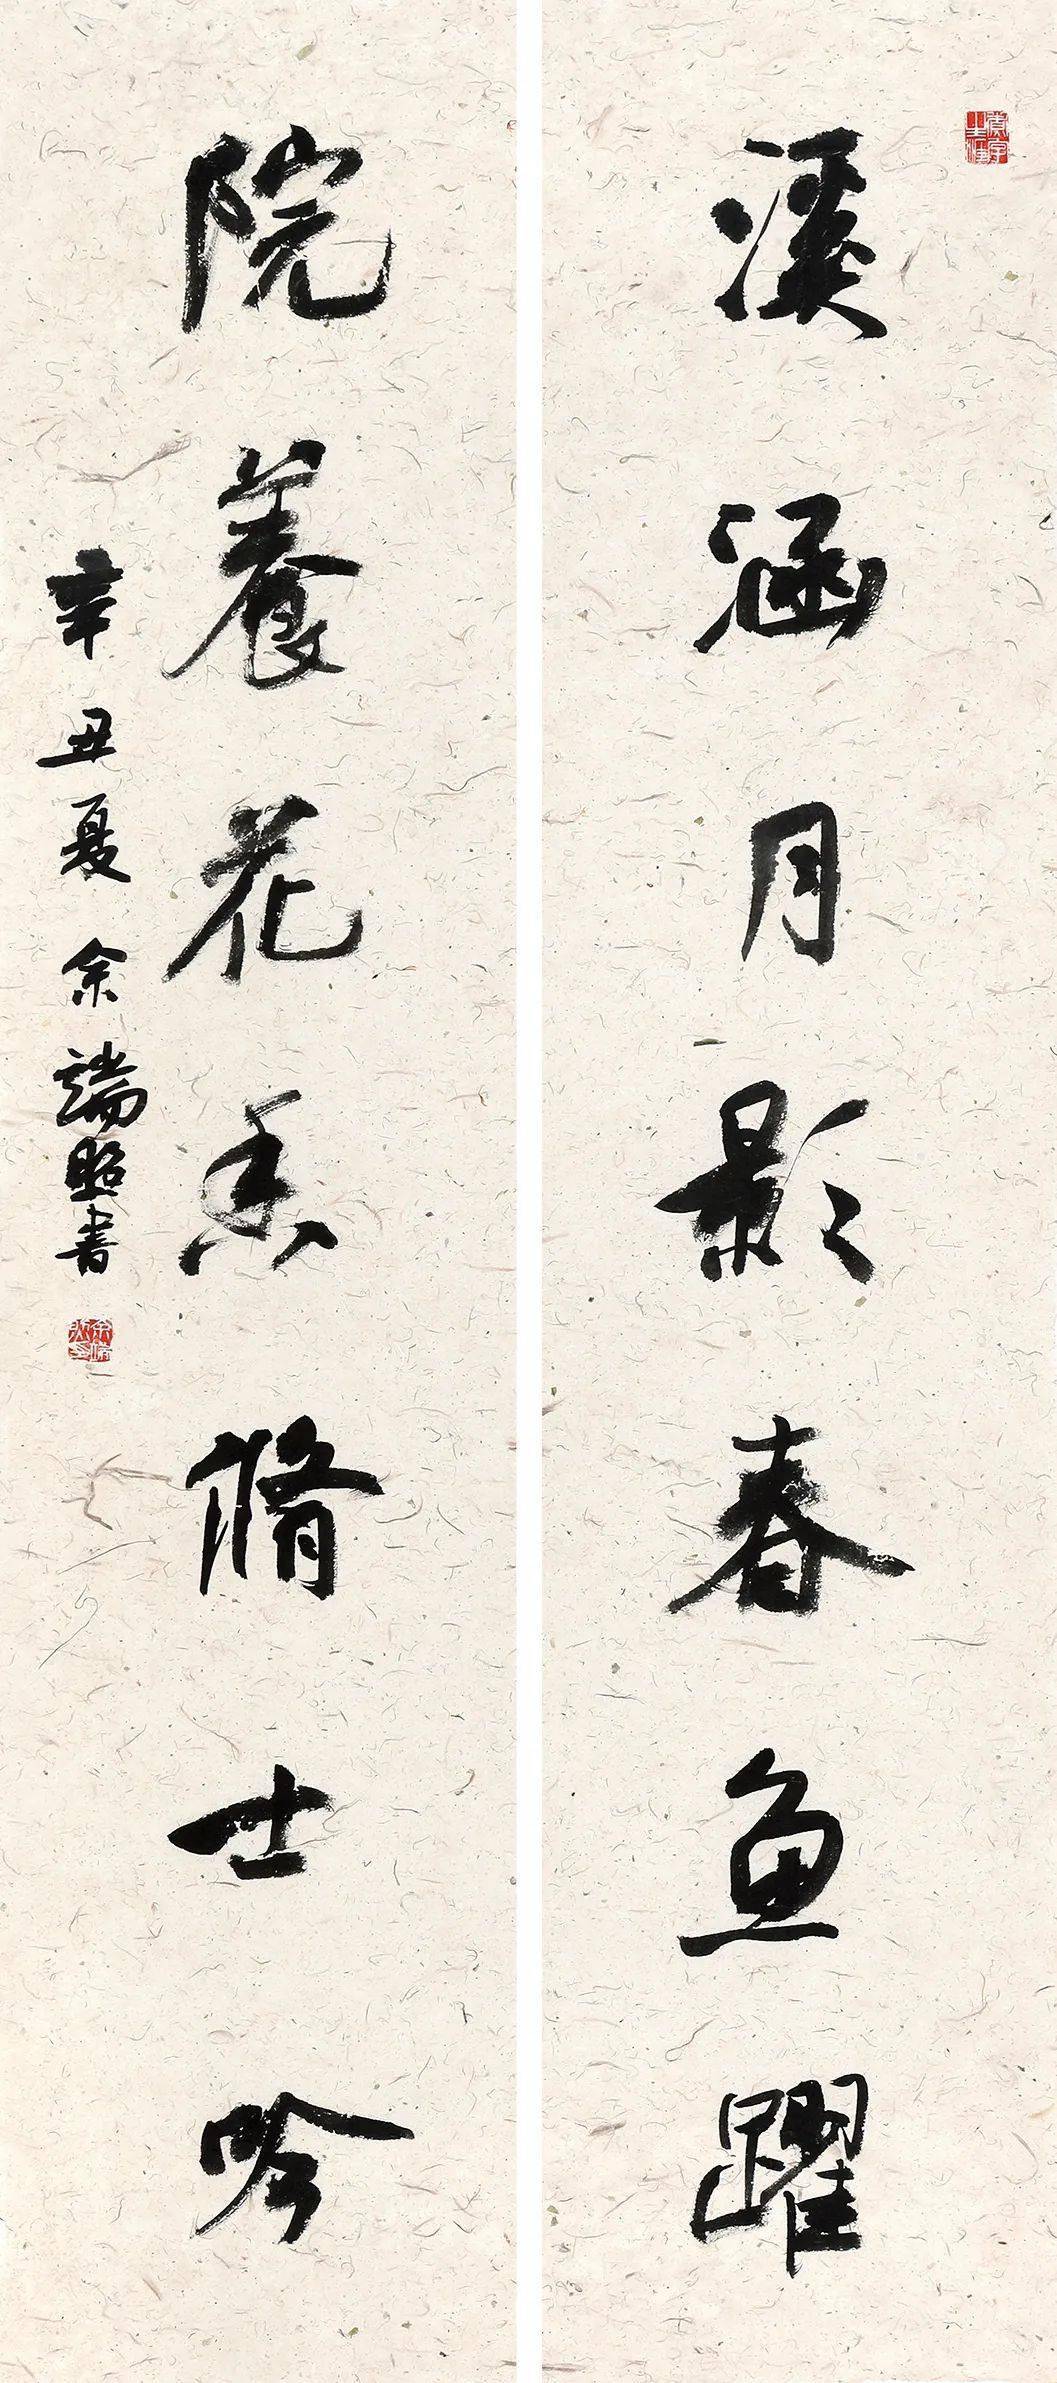 溪涵月影春魚躍
院養花香脩士吟
辛丑夏余端照書